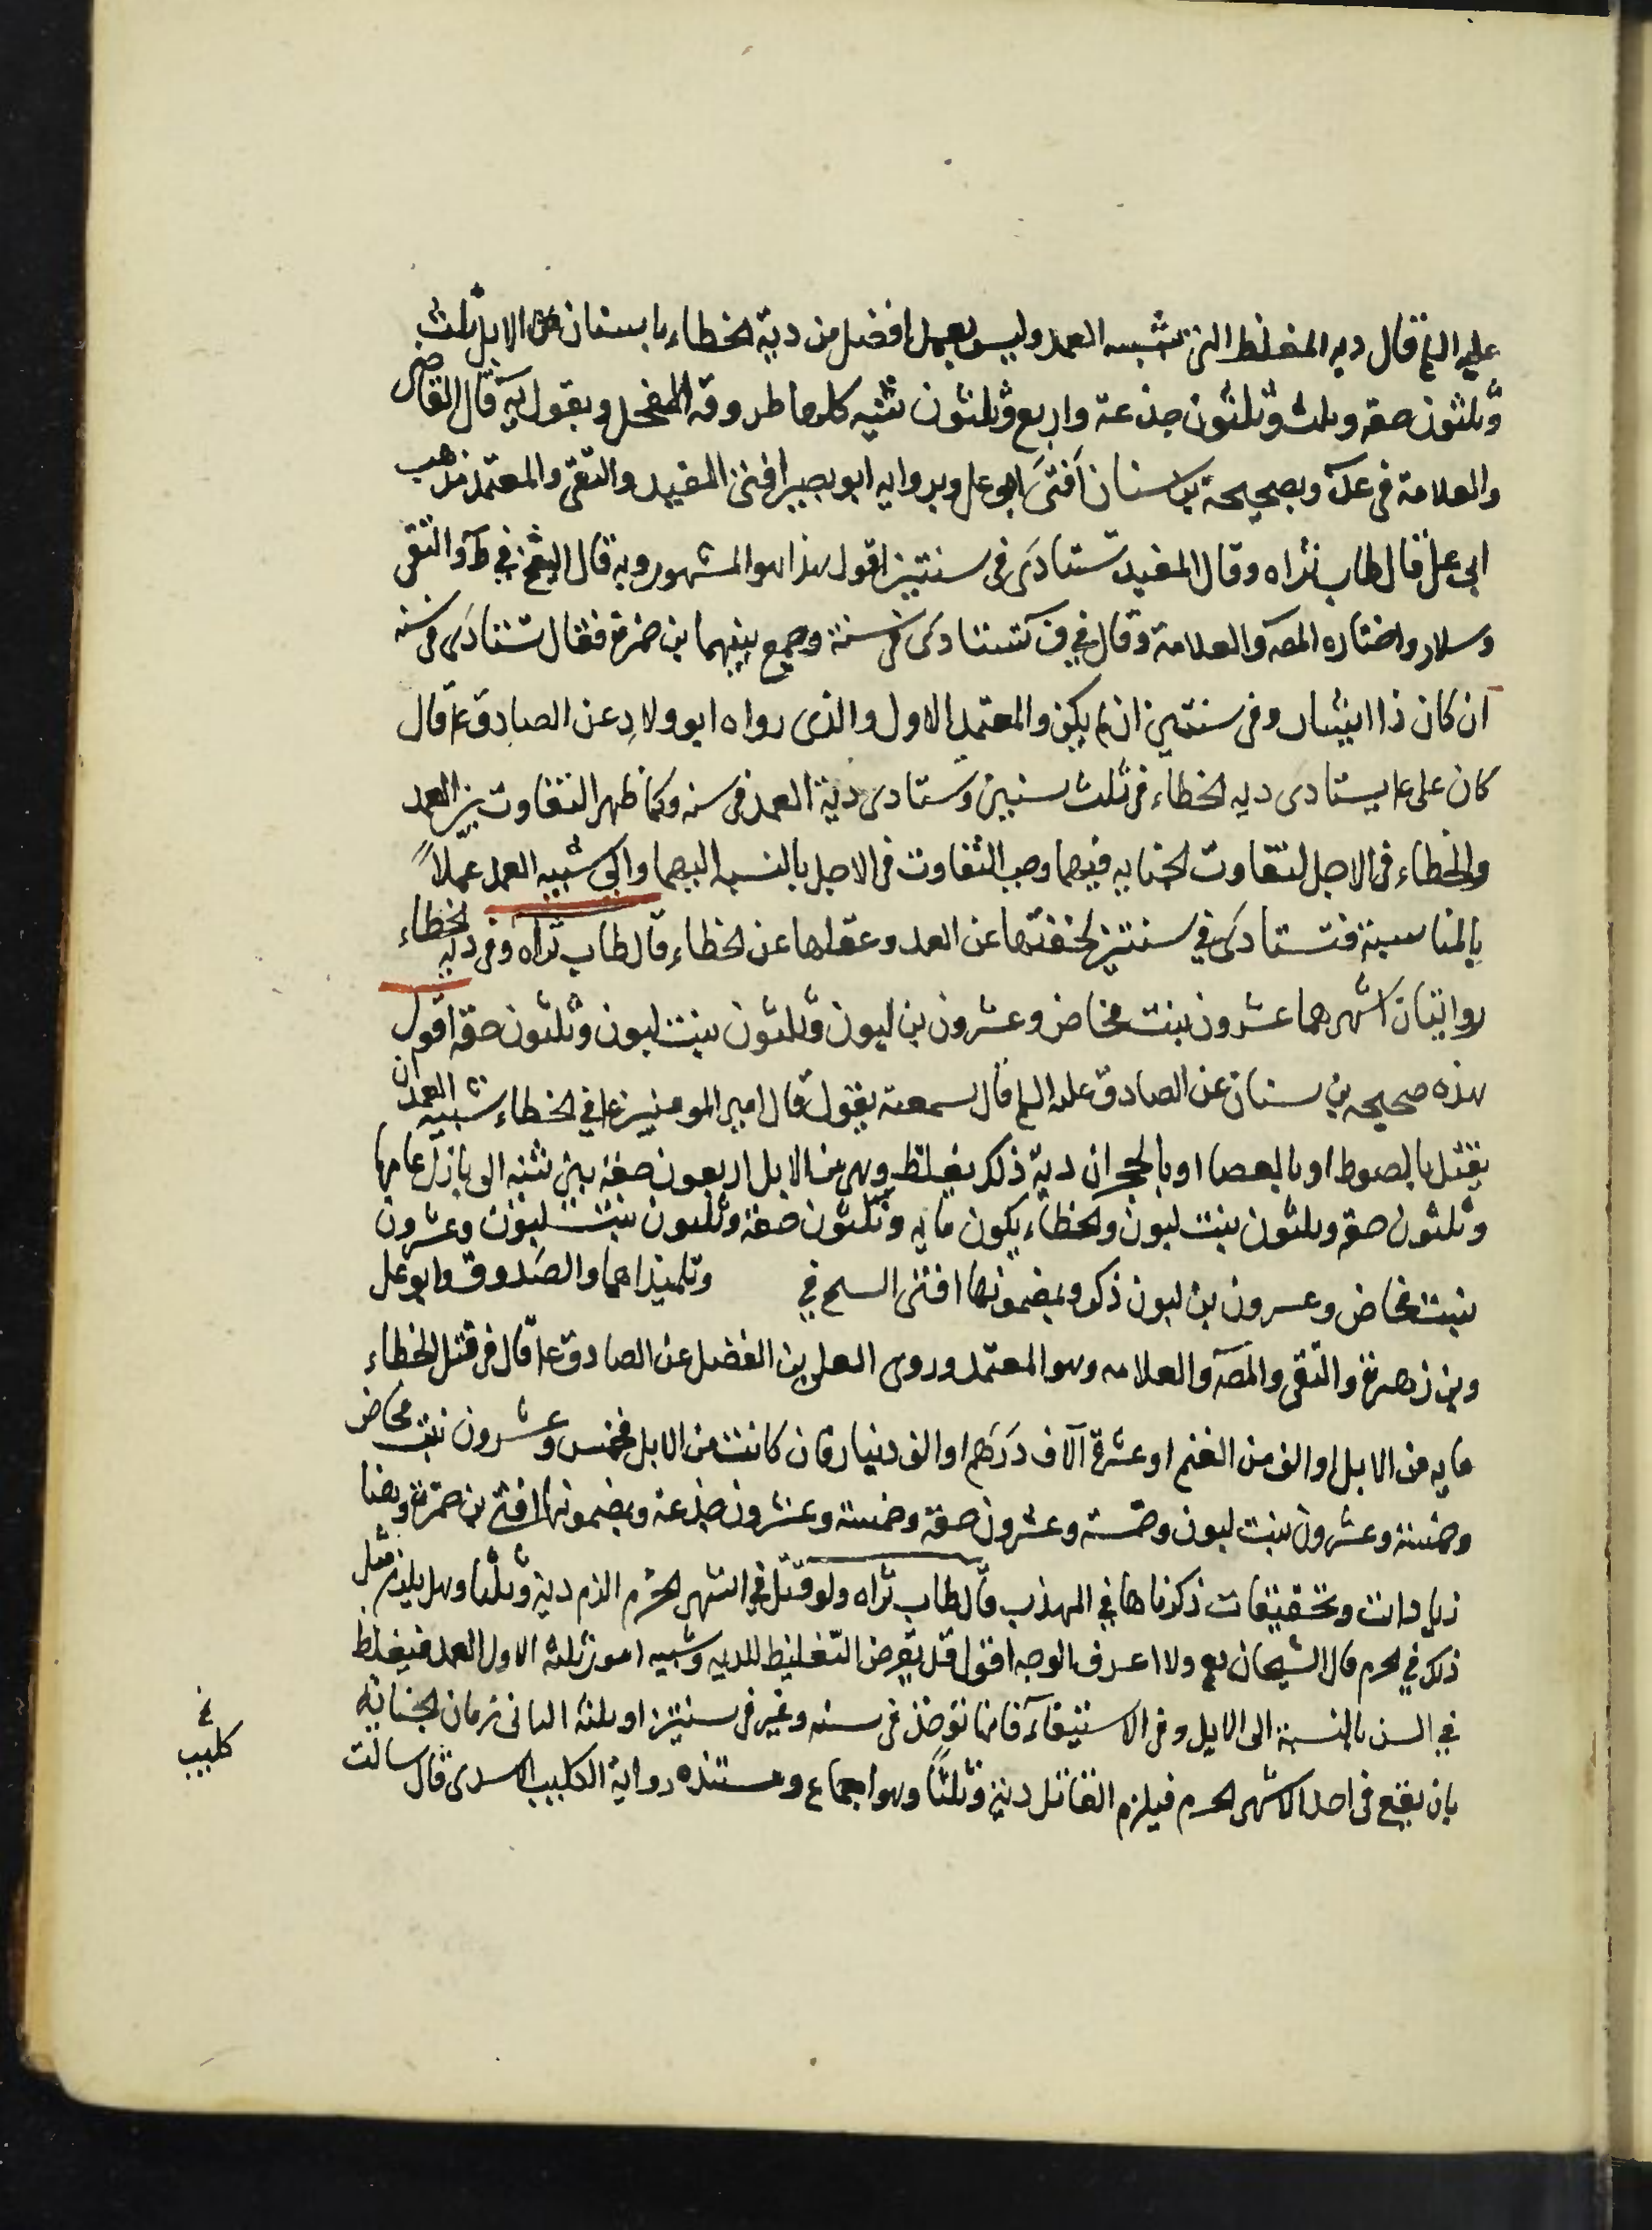 عليه السلم قال ديه المغلظ التى تشبه العمد وليس بعمد افضل من دية الخطاء باسنان من الابل ثلث
وثلثون حقه وثلث وثلثون جذعة واربع وثلثون ثنيه كلها طروقه الفحل وبقوليه قال القاضى
والعلامة فى عد وبصحيحة بن سنان افتى ابو على وبروايه ابو بصير افتى المفيد والتقى والمعتمد مذهب
ابى على قال طاب ثراه وقال المفيد تستادى فى سنتين اقول هذا هو المشهور وبه قال الشيخ في ط والتقى
وسلار واختاره المص والعلامة وقال في ف تستادى فى سنة وجمع بينهما بن حمزة فقال تستادى فى سنه
ان كان ذا ايسار وفى سنتين ان لم يكن والمعتمد الاول والذى رواه ابو ولاد عن الصادق ع قال
كان على ع يستادى ديه الخطاء فى ثلث سنين وستادى دية العمد فى سنه وكما ظهر التفاوت بين العمد
والخطاء فى الاجل لتفاوت الجنايه فيهما وجب التفاوت فى الاجل بالنسبه اليهما والى شبيه العمد عملاً
بالمناسبة فتستادى في سنتين لخفتها عن العمد وعقلها عن الخطاء قال طاب ثراه وفى ديه الخطاء
روايتان اشهرهما عشرون بنت مخاض وعشرون بن لبون وثلثون بنت لبون وثلثون حقه اقول
هذه صحيحه بن سنان عن الصادق عليه السلم قال سمعته يقول قال امير المومنين ع في الخطاء شبيه العمد ان
يقتل بالصوط او بالعصا او بالحجر ان دية ذلك يغلظ وهى من الابل اربعون حقة بين ثنيه الى بازل عامها
وثلثون حقه وثلثون بنت لبون والخطاء يكون مايه وثلثون حقة وثلثون بنت لبون وعشرون
بنت مخاض وعشرون بن لبون ذكر وبمضمونها افتى الشيخ في وتلميذاهما والصدوق وابو على
وبن زهرة والتقى والمص والعلامه وهو المعتمد وروى العلى بن الفضل عن الصادق ع قال فى قتل الخطاء
مايه من الابل او الف من الغنم او عشرة آلاف درهم او الف دنيار فان كانت من الابل فخمس وعشرون بنت مخاض
وخمسة وعشرون بنت لبون وخمسة وعشرون حقه وخمسة وعشرون جذعه وبمضمونها افتى بن حمزة وهنا
زيادات وتحقيقات ذكرناها في المهذب قال طاب ثراه ولو قتل في الشهر الحرم الزم دية وثلثا وهل يلزم مثل
ذلك في الحرم قال الشيخان نعم ولا اعرف الوجه اقول قد يعرض التغليظ للديه وشبيه امور ثلثه الاول العمد فيغلظ
في السن بالنسبة الى الابل وفى الاستيفآء فانها توخذ فى سنه وغيره فى سنتين او ثلثه الثانى زمان الجنايه
بان يقع فى احد الاشهر الحرم فيلزم القاتل دية وثلثاً وهو اجماع ومستنده رواية الكليب الاسدى قال سالت
كليب
خ